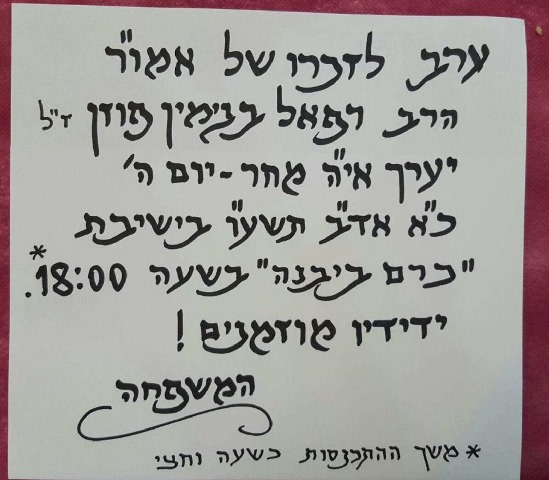 ערב לזכרו של אמו"ר
הרב רפאל בנימין פוזן ז"ל
יערך אי"ה מחר - יום ה'
כ"א אד"ב תשע"ו בישיבת
"כרם ביבנה" בשעה 18:00*.
ידידיו מוזמנים!
המשפחה
* משך ההתכנסות כשעה וחצי